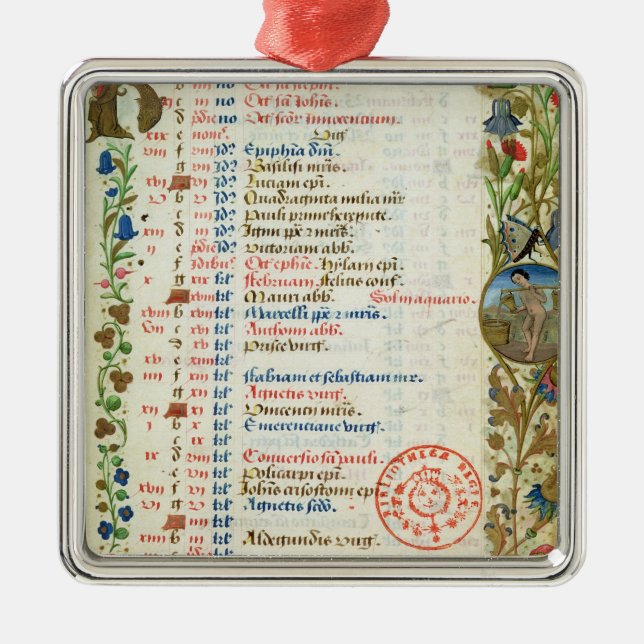 c iii no Oct sci Johis.
d iii no Oct scōr Innocentium.
xix e non⁹. Virg̃
viii f viii Id⁹ Epiphĩa dn̄i.
g vii Id⁹ Basilisi mr̃is.
xvi vi Id⁹ Luciani ep̄i.
v b v Id⁹ Quadraginta milia mr̃
c iiii Id⁹ Pauli primi heremite.
xiii d iii Id⁹
ii e pdie Id⁹ Victoriani abb̃
f Idibus Oct ephie. hylarii ep̄i.
x g xix kl̃ februarii felicis conf̃
xviii kl̃ Mauri abb̃ Sol in aquario.
xviii b xvii kl̃ Marcelli pp̃e ⁊ mr̃is.
vii c xvi kl̃ Anthonii abb̃.
d xv kl̃ Prisce virg̃.
xv e xiiii kl̃
iiii f xiii kl̃ fabiani et sebastiani mr̃.
g xii kl̃ Agnetis virg̃.
xii xi kl̃ Vincentii mr̃is.
i b x kl̃ Emerenciane virg̃.
c ix kl̃
ix d viii kl̃ Conversio sci pauli.
e vii kl̃ Policarpi ep̄i.
xvii f vi kl̃ Johis crisostomi ep̄i
vi g v kl̃ Agnetis scdo.
iiii kl̃
xiiii b iii kl̃ Aldegundis virg̃.
BIBLIOTHECÆ REGIÆ